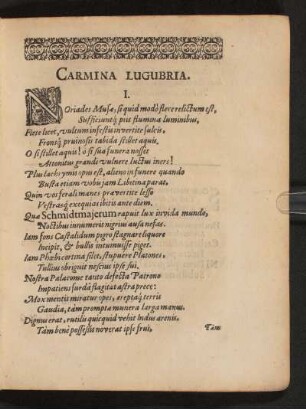 CARMINA LUGUBRIA.
I.
NOriades Musæ, si quid modò flere redictum est,
Sufficiuntq́; piis flumina luminibus,
Flete licet, vultum infestis in vertite sulcis,
Fronsq́; pruinosis tabida stillet aquis.
O si stillet aquis! ô si sua funera nosset
Attonitus grandi vulnere luctus iners!
Plus lachrymis opus est, alieno in funere quando
Busta etiam vobis jam Libitina parat.
Quin vos ferali manes prævertite lesso
Vestrasq́; exequias ibitis ante diem.
Quæ Schmidmajerum rapuit lux invida mundo,
Noctibus innumeris nigrius ausa nefas.
Iam fons Castalidum pigro stagnare liquore
Incipit, & bullis intumuisse piget.
Iam Phœbi cortina silet, stupuere Platones,
Tullius obriguit nescius ipse sui,
Nostra Palæomæ tanto defecta Patrono
Impatiens surdâ flagitat astra prece:
Mox mentis miratus opes, ereptaq́; terris
Gaudia, tàm prompta munera larga manus.
Dignus erat, rutili quicquid vehit Indus arenis,
Tàm benè possessis noverat ipse frui,
Tàm